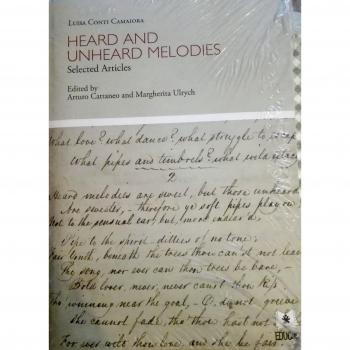 LUISA CONTI CAMAIORA
HEARD AND
UNHEARD MELODIES
Selected Articles
Edited by
Arturo Cattaneo and Margherita Ulrych
What love? what dance? what struggle to escape
What pipes and timbrels? what wild
2
Heard melodies are sweet, but those unheard
Are sweeter, therefore ye soft pipes play on
Not to the sensual ear; but, more endear'd,
Pipe to the spirit ditties of no tone;
Fair youth, beneath the trees thou can'st not leave
Thy song, nor ever can those trees be bare,
Bold lover, never, never can'st thou kiss
Tho' winning near the goal, O, do not grieve
She cannot fade, tho' thou hast not
For ever wilt thou love, and she be fair.
EDUC